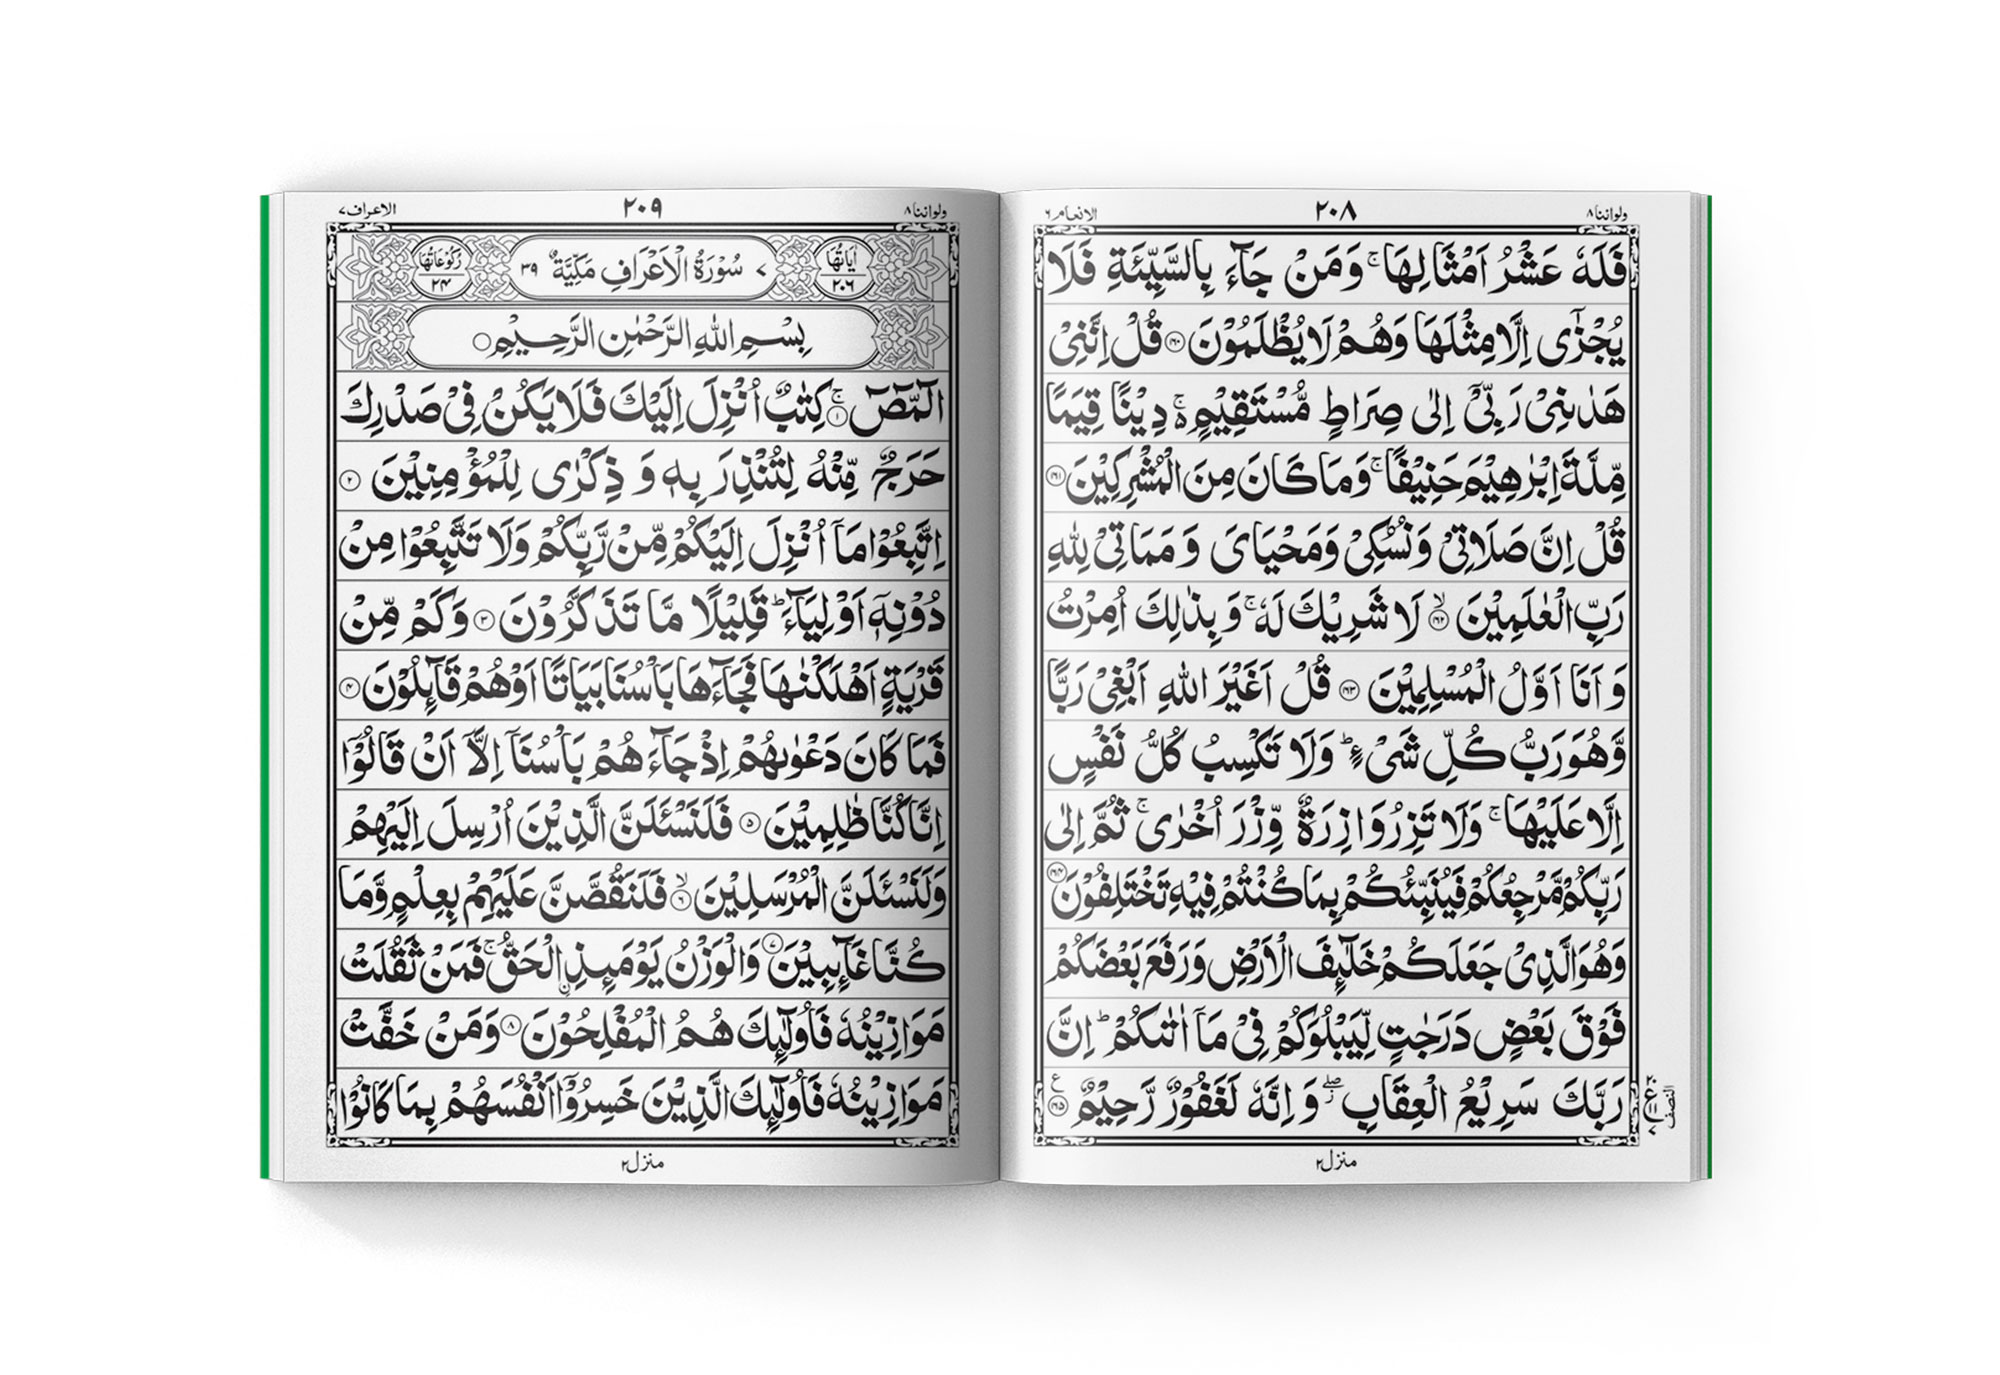 ولواننا ٨
٢٠٨
الانعام ٦
فَلَهٗ عَشْرُ اَمْثَالِهَا ۚ وَمَنْ جَآءَ بِالسَّيِّئَةِ فَلَا
يُجْزٰٓى اِلَّا مِثْلَهَا وَهُمْ لَا يُظْلَمُوْنَ ﴿١٦٠﴾ قُلْ اِنَّنِيْ
هَدٰىنِيْ رَبِّيْٓ اِلٰى صِرَاطٍ مُّسْتَقِيْمٍ ۚ۬ دِيْنًا قِيَمًا
مِّلَّةَ اِبْرٰهِيْمَ حَنِيْفًا ۚ وَمَا كَانَ مِنَ الْمُشْرِكِيْنَ ﴿١٦١﴾
قُلْ اِنَّ صَلَاتِيْ وَنُسُكِيْ وَمَحْيَايَ وَمَمَاتِيْ لِلّٰهِ
رَبِّ الْعٰلَمِيْنَ ﴿١٦٢﴾ۙ لَا شَرِيْكَ لَهٗ ۚ وَبِذٰلِكَ اُمِرْتُ
وَاَنَا اَوَّلُ الْمُسْلِمِيْنَ ﴿١٦٣﴾ قُلْ اَغَيْرَ اللّٰهِ اَبْغِيْ رَبًّا
وَّهُوَ رَبُّ كُلِّ شَيْءٍ ؕ وَلَا تَكْسِبُ كُلُّ نَفْسٍ
اِلَّا عَلَيْهَا ۚ وَلَا تَزِرُ وَازِرَةٌ وِّزْرَ اُخْرٰى ۚ ثُمَّ اِلٰى
رَبِّكُمْ مَّرْجِعُكُمْ فَيُنَبِّئُكُمْ بِمَا كُنْتُمْ فِيْهِ تَخْتَلِفُوْنَ ﴿١٦٤﴾
وَهُوَ الَّذِيْ جَعَلَكُمْ خَلٰٓئِفَ الْاَرْضِ وَرَفَعَ بَعْضَكُمْ
فَوْقَ بَعْضٍ دَرَجٰتٍ لِّيَبْلُوَكُمْ فِيْ مَآ اٰتٰىكُمْ ؕ اِنَّ
رَبَّكَ سَرِيْعُ الْعِقَابِ ۖ وَاِنَّهٗ لَغَفُوْرٌ رَّحِيْمٌ ﴿١٦٥﴾ ع
النصف
منزل ٢
ولواننا ٨
٢٠٩
الاعراف ٧
اٰيَاتُهَا ٢٠٦
٧ سُوْرَةُ الْاَعْرَافِ مَكِّيَّةٌ ٣٩
رُكُوْعَاتُهَا ٢٤
بِسْمِ اللّٰهِ الرَّحْمٰنِ الرَّحِيْمِ
الٓمّٓصٓ ﴿١﴾ۚ كِتٰبٌ اُنْزِلَ اِلَيْكَ فَلَا يَكُنْ فِيْ صَدْرِكَ
حَرَجٌ مِّنْهُ لِتُنْذِرَ بِهٖ وَذِكْرٰى لِلْمُؤْمِنِيْنَ ﴿٢﴾
اِتَّبِعُوْا مَآ اُنْزِلَ اِلَيْكُمْ مِّنْ رَّبِّكُمْ وَلَا تَتَّبِعُوْا مِنْ
دُوْنِهٖٓ اَوْلِيَآءَ ؕ قَلِيْلًا مَّا تَذَكَّرُوْنَ ﴿٣﴾ وَكَمْ مِّنْ
قَرْيَةٍ اَهْلَكْنٰهَا فَجَآءَهَا بَاْسُنَا بَيَاتًا اَوْ هُمْ قَآئِلُوْنَ ﴿٤﴾
فَمَا كَانَ دَعْوٰىهُمْ اِذْ جَآءَهُمْ بَاْسُنَآ اِلَّآ اَنْ قَالُوْٓا
اِنَّا كُنَّا ظٰلِمِيْنَ ﴿٥﴾ فَلَنَسْئَلَنَّ الَّذِيْنَ اُرْسِلَ اِلَيْهِمْ
وَلَنَسْئَلَنَّ الْمُرْسَلِيْنَ ﴿٦﴾ۙ فَلَنَقُصَّنَّ عَلَيْهِمْ بِعِلْمٍ وَّمَا
كُنَّا غَآئِبِيْنَ ﴿٧﴾ وَالْوَزْنُ يَوْمَئِذِ ۨالْحَقُّ ۚ فَمَنْ ثَقُلَتْ
مَوَازِيْنُهٗ فَاُولٰٓئِكَ هُمُ الْمُفْلِحُوْنَ ﴿٨﴾ وَمَنْ خَفَّتْ
مَوَازِيْنُهٗ فَاُولٰٓئِكَ الَّذِيْنَ خَسِرُوْٓا اَنْفُسَهُمْ بِمَا كَانُوْا
منزل ٢